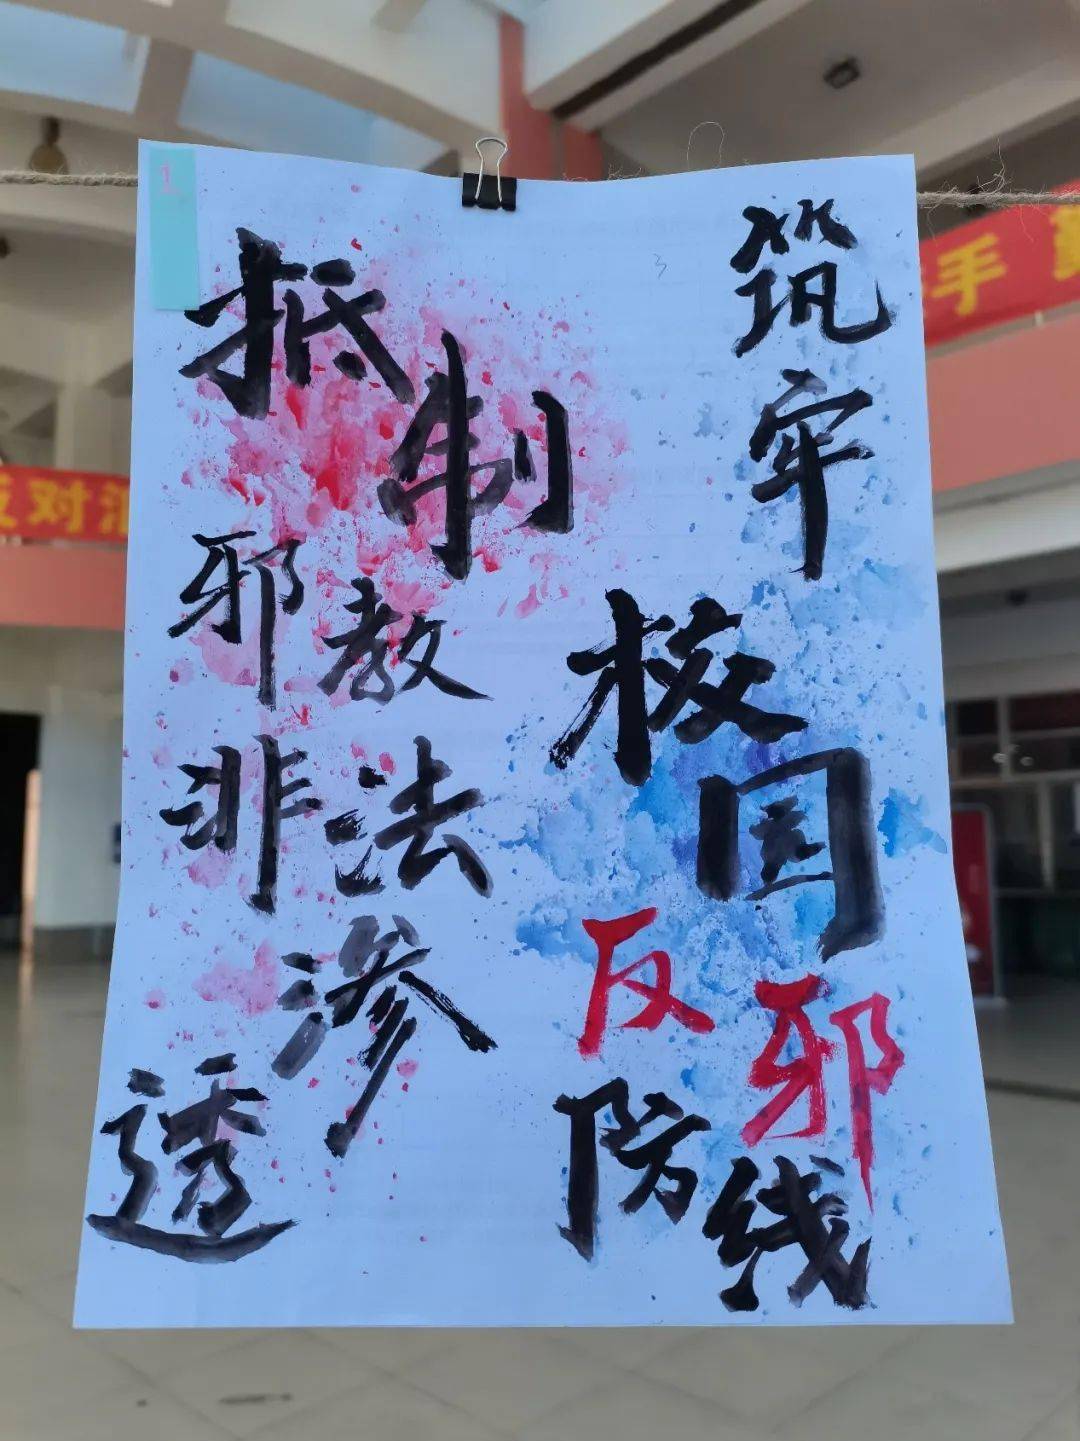 1
抵制
邪教
非法
渗透
筑牢
校园
反邪
防线
对
手